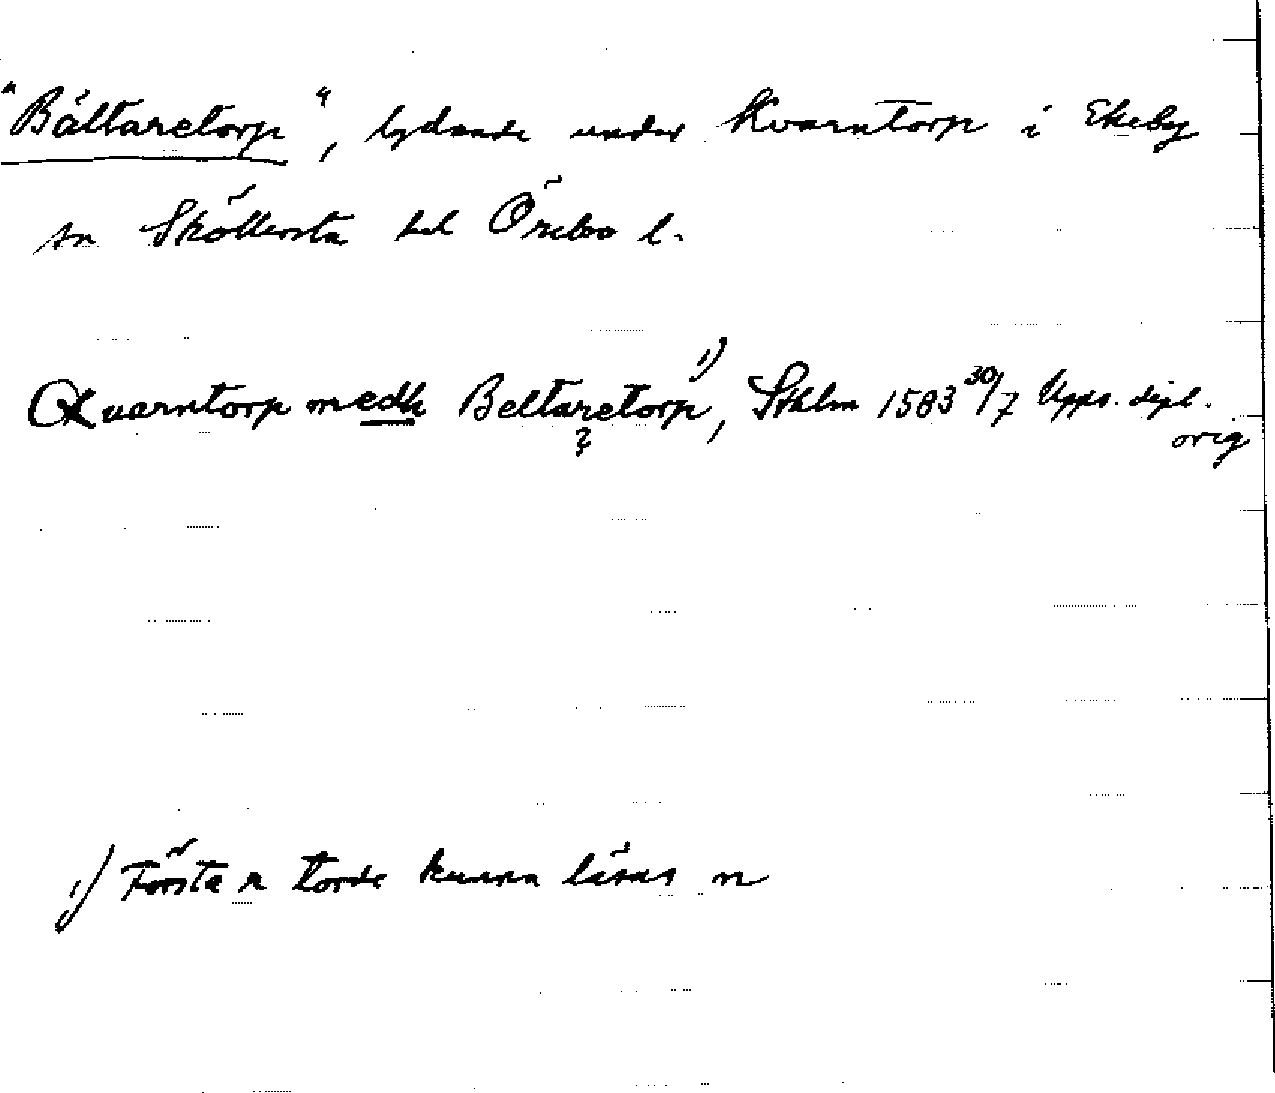 "Bältaretorp", lydande under Kvarntorp i Ekeby
sn Sköllersta hd Örebro l.
Qvarntorp medh Beltaretorp¹⁾, Sthlm 1583 30/7 Upps. dipl.
?
orig
1) Första r torde kunna läsas n